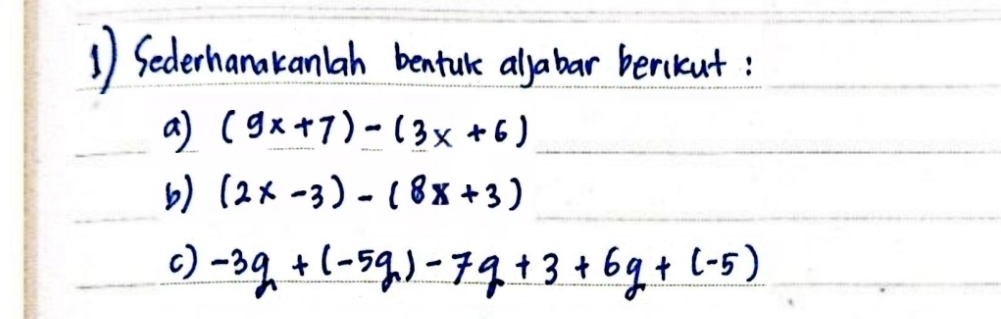 1) Sederhanakanlah bentuk aljabar berikut :
a) (9x+7)-(3x+6)
b) (2x-3)-(8x+3)
c) -3q+(-5q)-7q+3+6q+(-5)